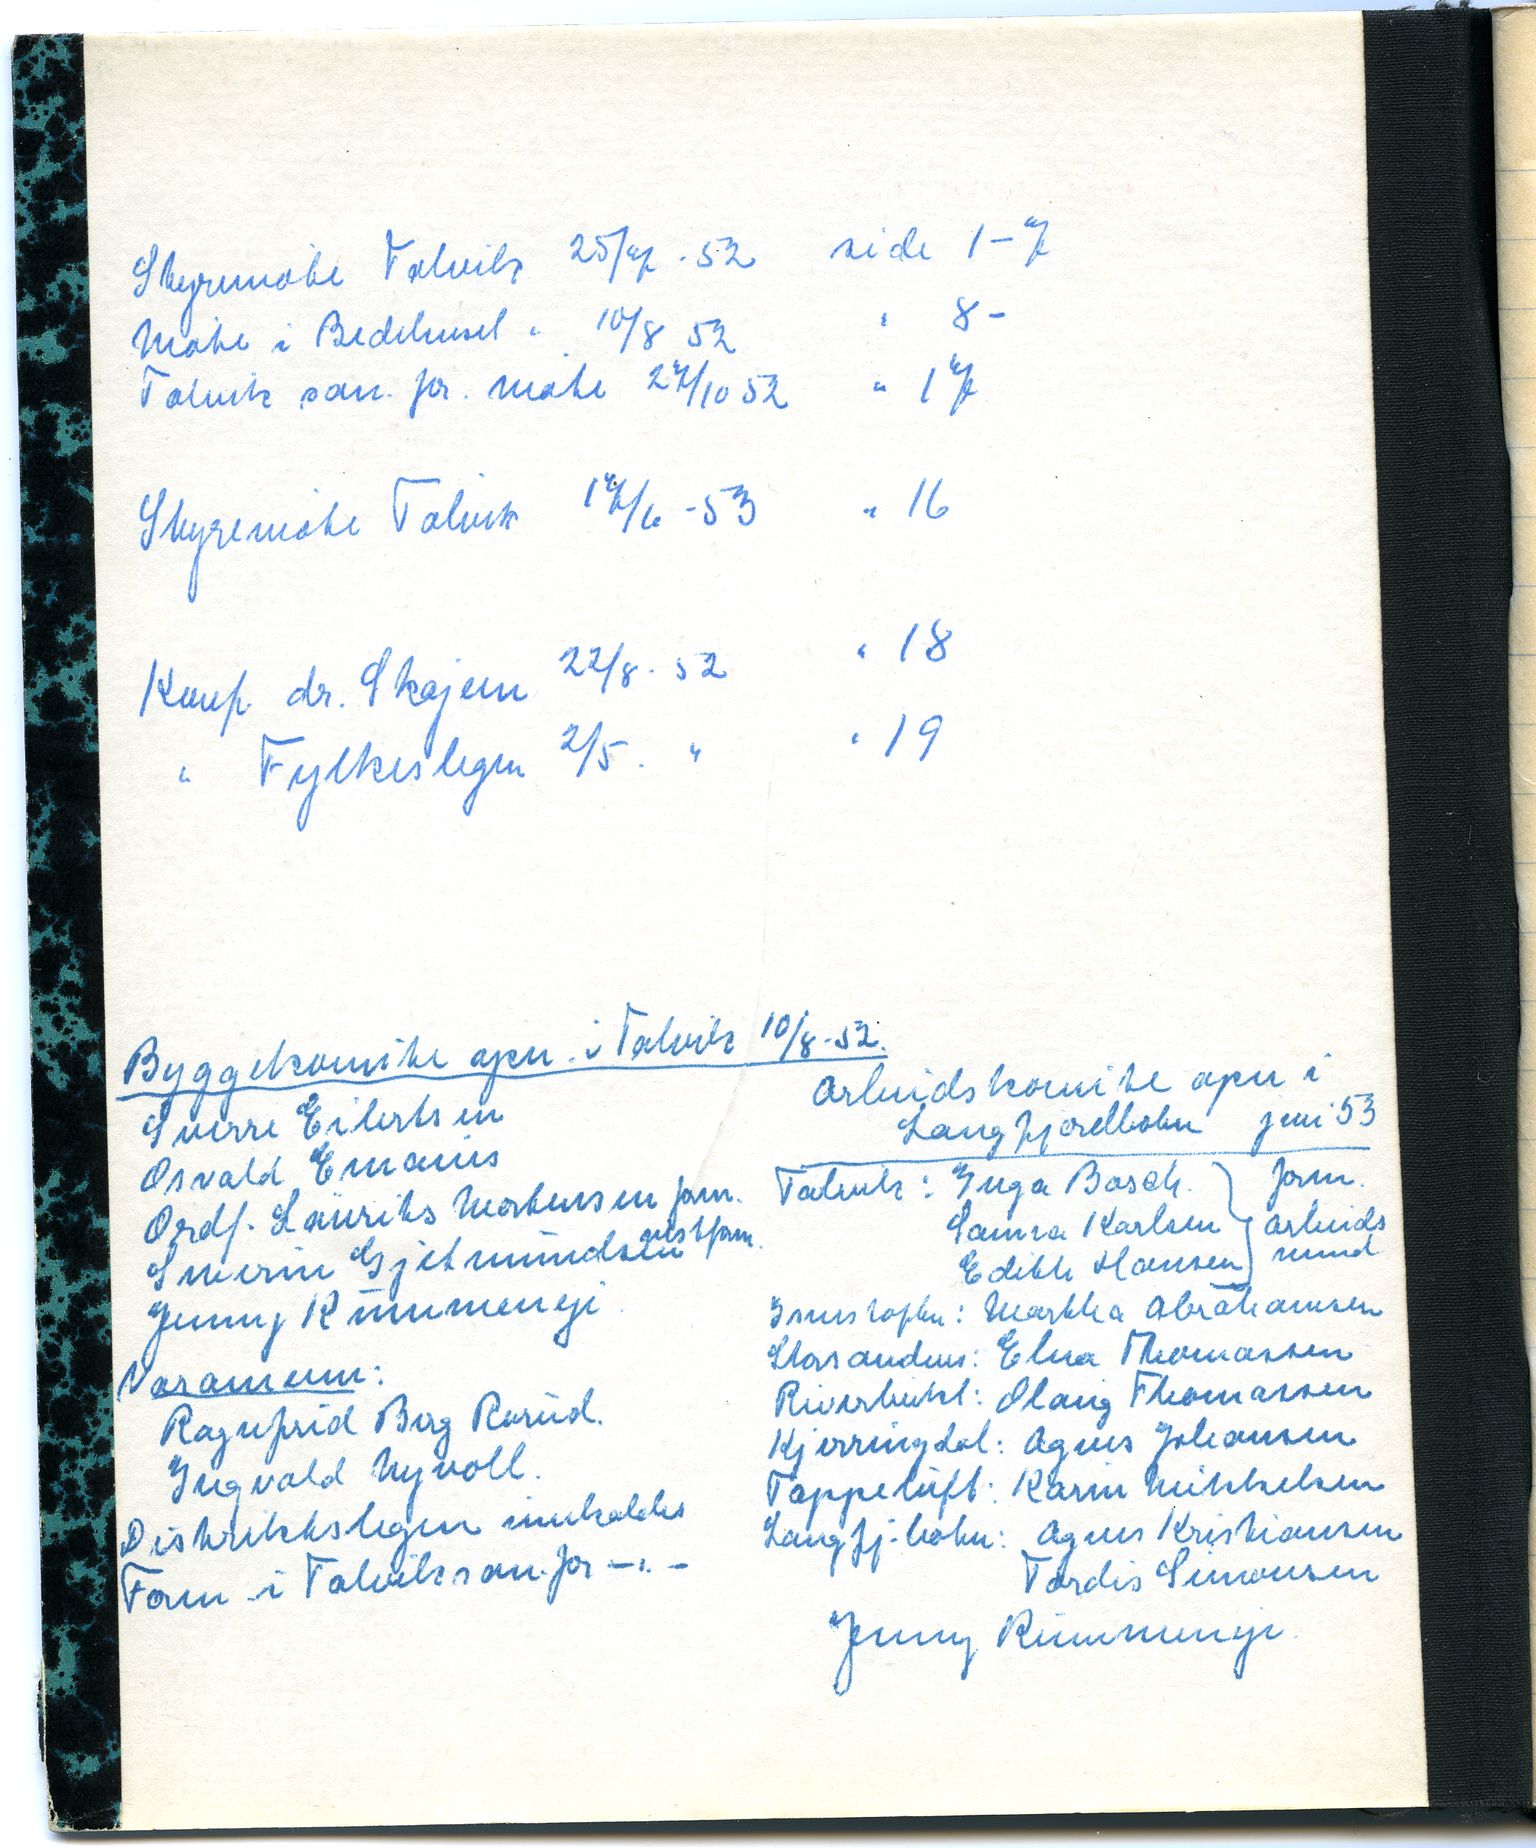 Styremöte Talvik 25/4 - 52 side 1-7
Möte i Bedehuset " 10/8 52 " 8-
Talvik san. for. möte 27/10 52 " 17
Styremöte Talvik 17/6 - 53 " 16
Konf. dr. Skajem 22/8 - 52 " 18
" Fylkeslegen 2/5. " " 19
Byggekomite opn. i Talvik 10/8-52.
Sverre Eilertsen
Osvald Emaus
Ordf. Laurits Mortensen form.
Severin Gjetmundsen nestform.
Jenny Rummenyi
Varamenn:
Ragnfrid Berg Rorud.
Ingvald Nyvoll.
Distriktslegen innkaldes
Form i Talvik san. for —"—
Arbeidskomite opn i
Langfjordbotn juni 53
Talvik: Inga Bosch. } form.
Sanna Karlsen } arbeids
Edith Hansen } mund
Isnestoften: Martha Abrahamsen
Storsandnes: Elna Thomassen
Riverbukt: Olaug Thomassen
Kjerringdal: Agnes Johansen
Toppeluft: Karin Mikkelsen
Langfj.botn: Agnes Kristiansen
Tordis Simonsen
Jenny Rummenyi